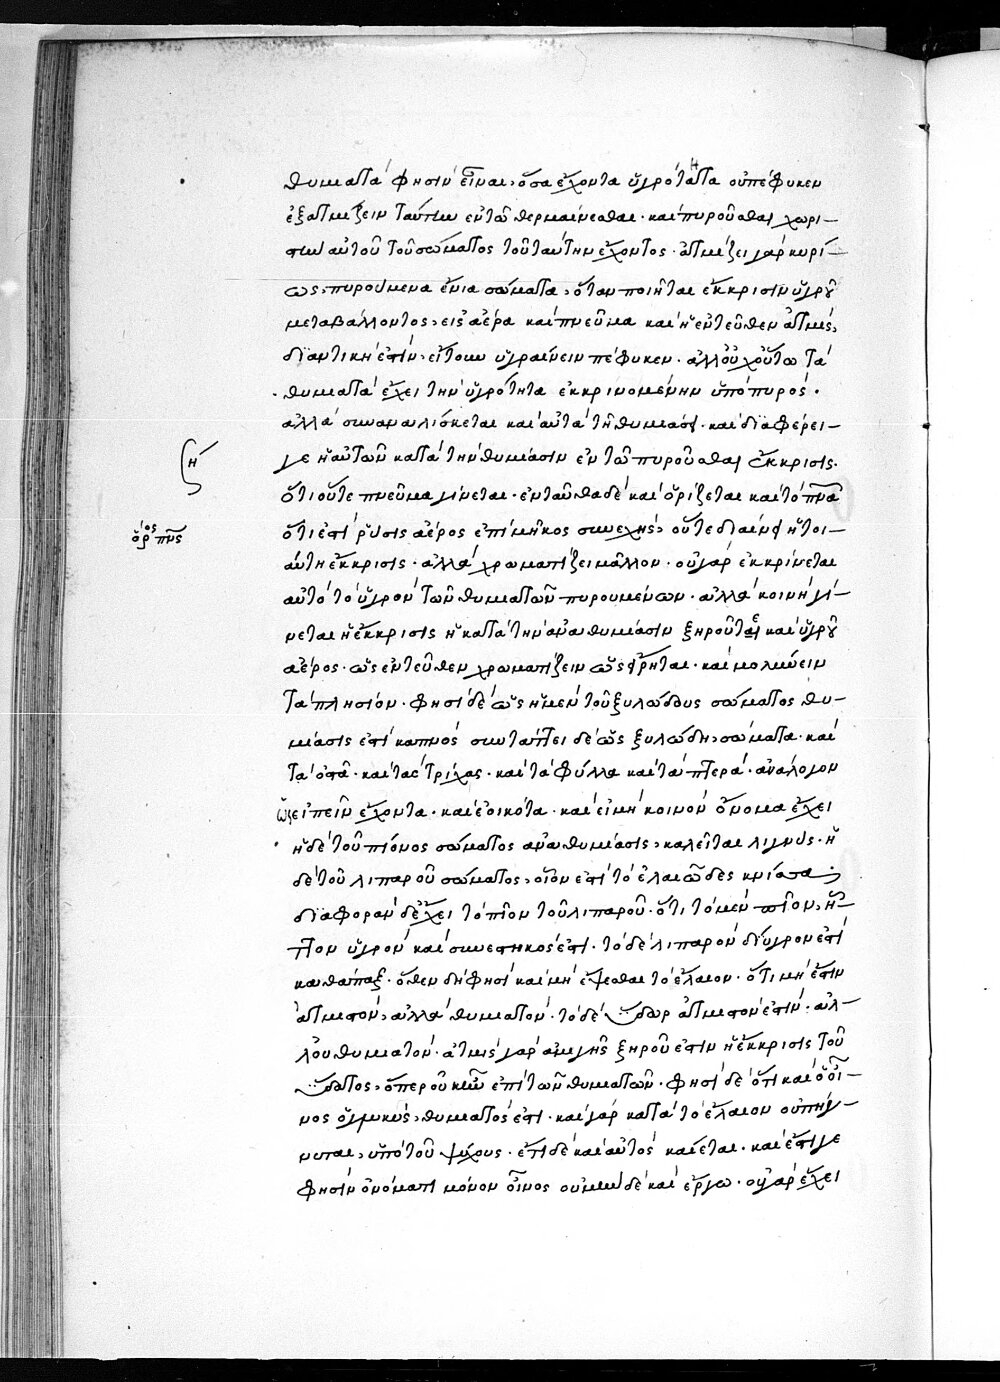 θυματὰ φησὶν εἶναι, ὅσα ἔχοντα ὑγρότητα οὐ πέφυκεν
ἐξατμίζειν ταύτην ἐν τῷ θερμαίνεσθαι· καὶ πυροῦσθαι χωρι–
στὴν αὐτοῦ τοῦ σώματος τοῦ ταύτην ἔχοντος· ἀτμίζει γὰρ κυρί–
ως, πυρούμενα ἔνια σώματα, ὅταν ποιῆται ἔκκρισιν ὑγροῦ
μεταβάλλοντος, εἰς ἀέρα καὶ πνεῦμα καὶ ἡ ἐντεῦθεν ἀτμίς,
διαντική ἐστιν, εἴτουν ὑγραίνειν πέφυκεν· ἀλλ' οὐχ οὕτω τὰ
θυματὰ ἔχει τὴν ὑγρότητα ἐκκρινομένην ὑπὸ πυρός·
ἀλλὰ συναναλίσκεται καὶ αὐτὰ τῇ θυμιάσει· καὶ διαφέρει–
γε ἡ αὐτῶν κατὰ τὴν θυμίασιν ἐν τῷ πυροῦσθαι ἔκκρισις·
ὅτι οὔτε πνεῦμα γίνεται· ἐνταῦθα δὲ καὶ ὁρίζεται καὶ τὸ πνα
ὅτι ἐστὶ ῥύσις ἀέρος ἐπὶ μῆκος συνεχής, οὔτε διαίνει ἡ τοι–
αύτη ἔκκρισις· ἀλλὰ χρωματίζει μᾶλλον· οὐ γὰρ ἐκκρίνεται
αὐτὸ τὸ ὑγρὸν τῶν θυματῶν πυρουμένων· ἀλλὰ κοινὴ γί–
νεται ἡ ἔκκρισις ἡ κατὰ τὴν ἀναθυμίασιν ξηροῦ τε καὶ ὑγροῦ
ἀέρος· ὡς ἐντεῦθεν χρωματίζειν ὡς εἴρηται· καὶ μολύνειν
τὰ πλησίον· φησὶ δὲ ὡς ἡ μὲν τοῦ ξυλώδους σώματος θυ–
μίασις ἐστὶ καπνός συντάττει δὲ ὡς ξυλώδη, σώματα· καὶ
τὰ ὀστᾶ· καὶ τὰς τρίχας· καὶ τὰ φύλλα καὶ τὰ πτερά· ἀνάλογον
ὥς εἰπεῖν ἔχοντα· καὶ ἐοικότα· καὶ εἰ μὴ κοινὸν ὄνομα ἔχει
ἡ δὲ τοῦ πίονος σώματος ἀναθυμίασις, καλεῖται λιγνύς· ἡ
δὲ τοῦ λιπαροῦ σώματος, οἷον ἐστὶ τὸ ἐλαιῶδες κνίσσα·
διαφορὰν δὲ ἔχει τὸ πῖον τοῦ λιπαροῦ· ὅτι τὸ μὲν πῖον, ἧτ–
τον ὑγρὸν καὶ συνεστηκός ἐστι· τὸ δὲ λιπαρὸν δίυγρον ἐστὶ
καθάπαξ· ὅθεν δὴ φησὶ καὶ μὴ ἕψεσθαι τὸ ἔλαιον· ὅτι μὴ ἔστιν
ἀτμιστόν, ἀλλὰ θυματόν· τὸ δὲ ὕδωρ ἀτμιστόν ἐστιν· ἀλ–
λ' οὐ θυματόν· ἀτμὶς γὰρ ἀμιγὴς ξηροῦ ἐστὶν ἡ ἔκκρισις τοῦ
ὕδατος, ὅπερ οὐκ ἦν ἐπὶ τῶν θυματῶν· φησὶ δὲ ὅτι καὶ ὁ οἶ–
νος ὁ γλυκύς, θυματός ἐστι· καὶ γὰρ κατὰ τὸ ἔλαιον οὐ πήγ–
νυται, ὑπὸ τοῦ ψύχους· ἔτι δὲ καὶ αὐτὸς καίεται· καὶ ἔστι γε
φησὶν ὀνόματι μόνον οἶνος οὐ μὴν δὲ καὶ ἔργω· οὐ γὰρ ἔχει
ἡ
ὅρος πνς